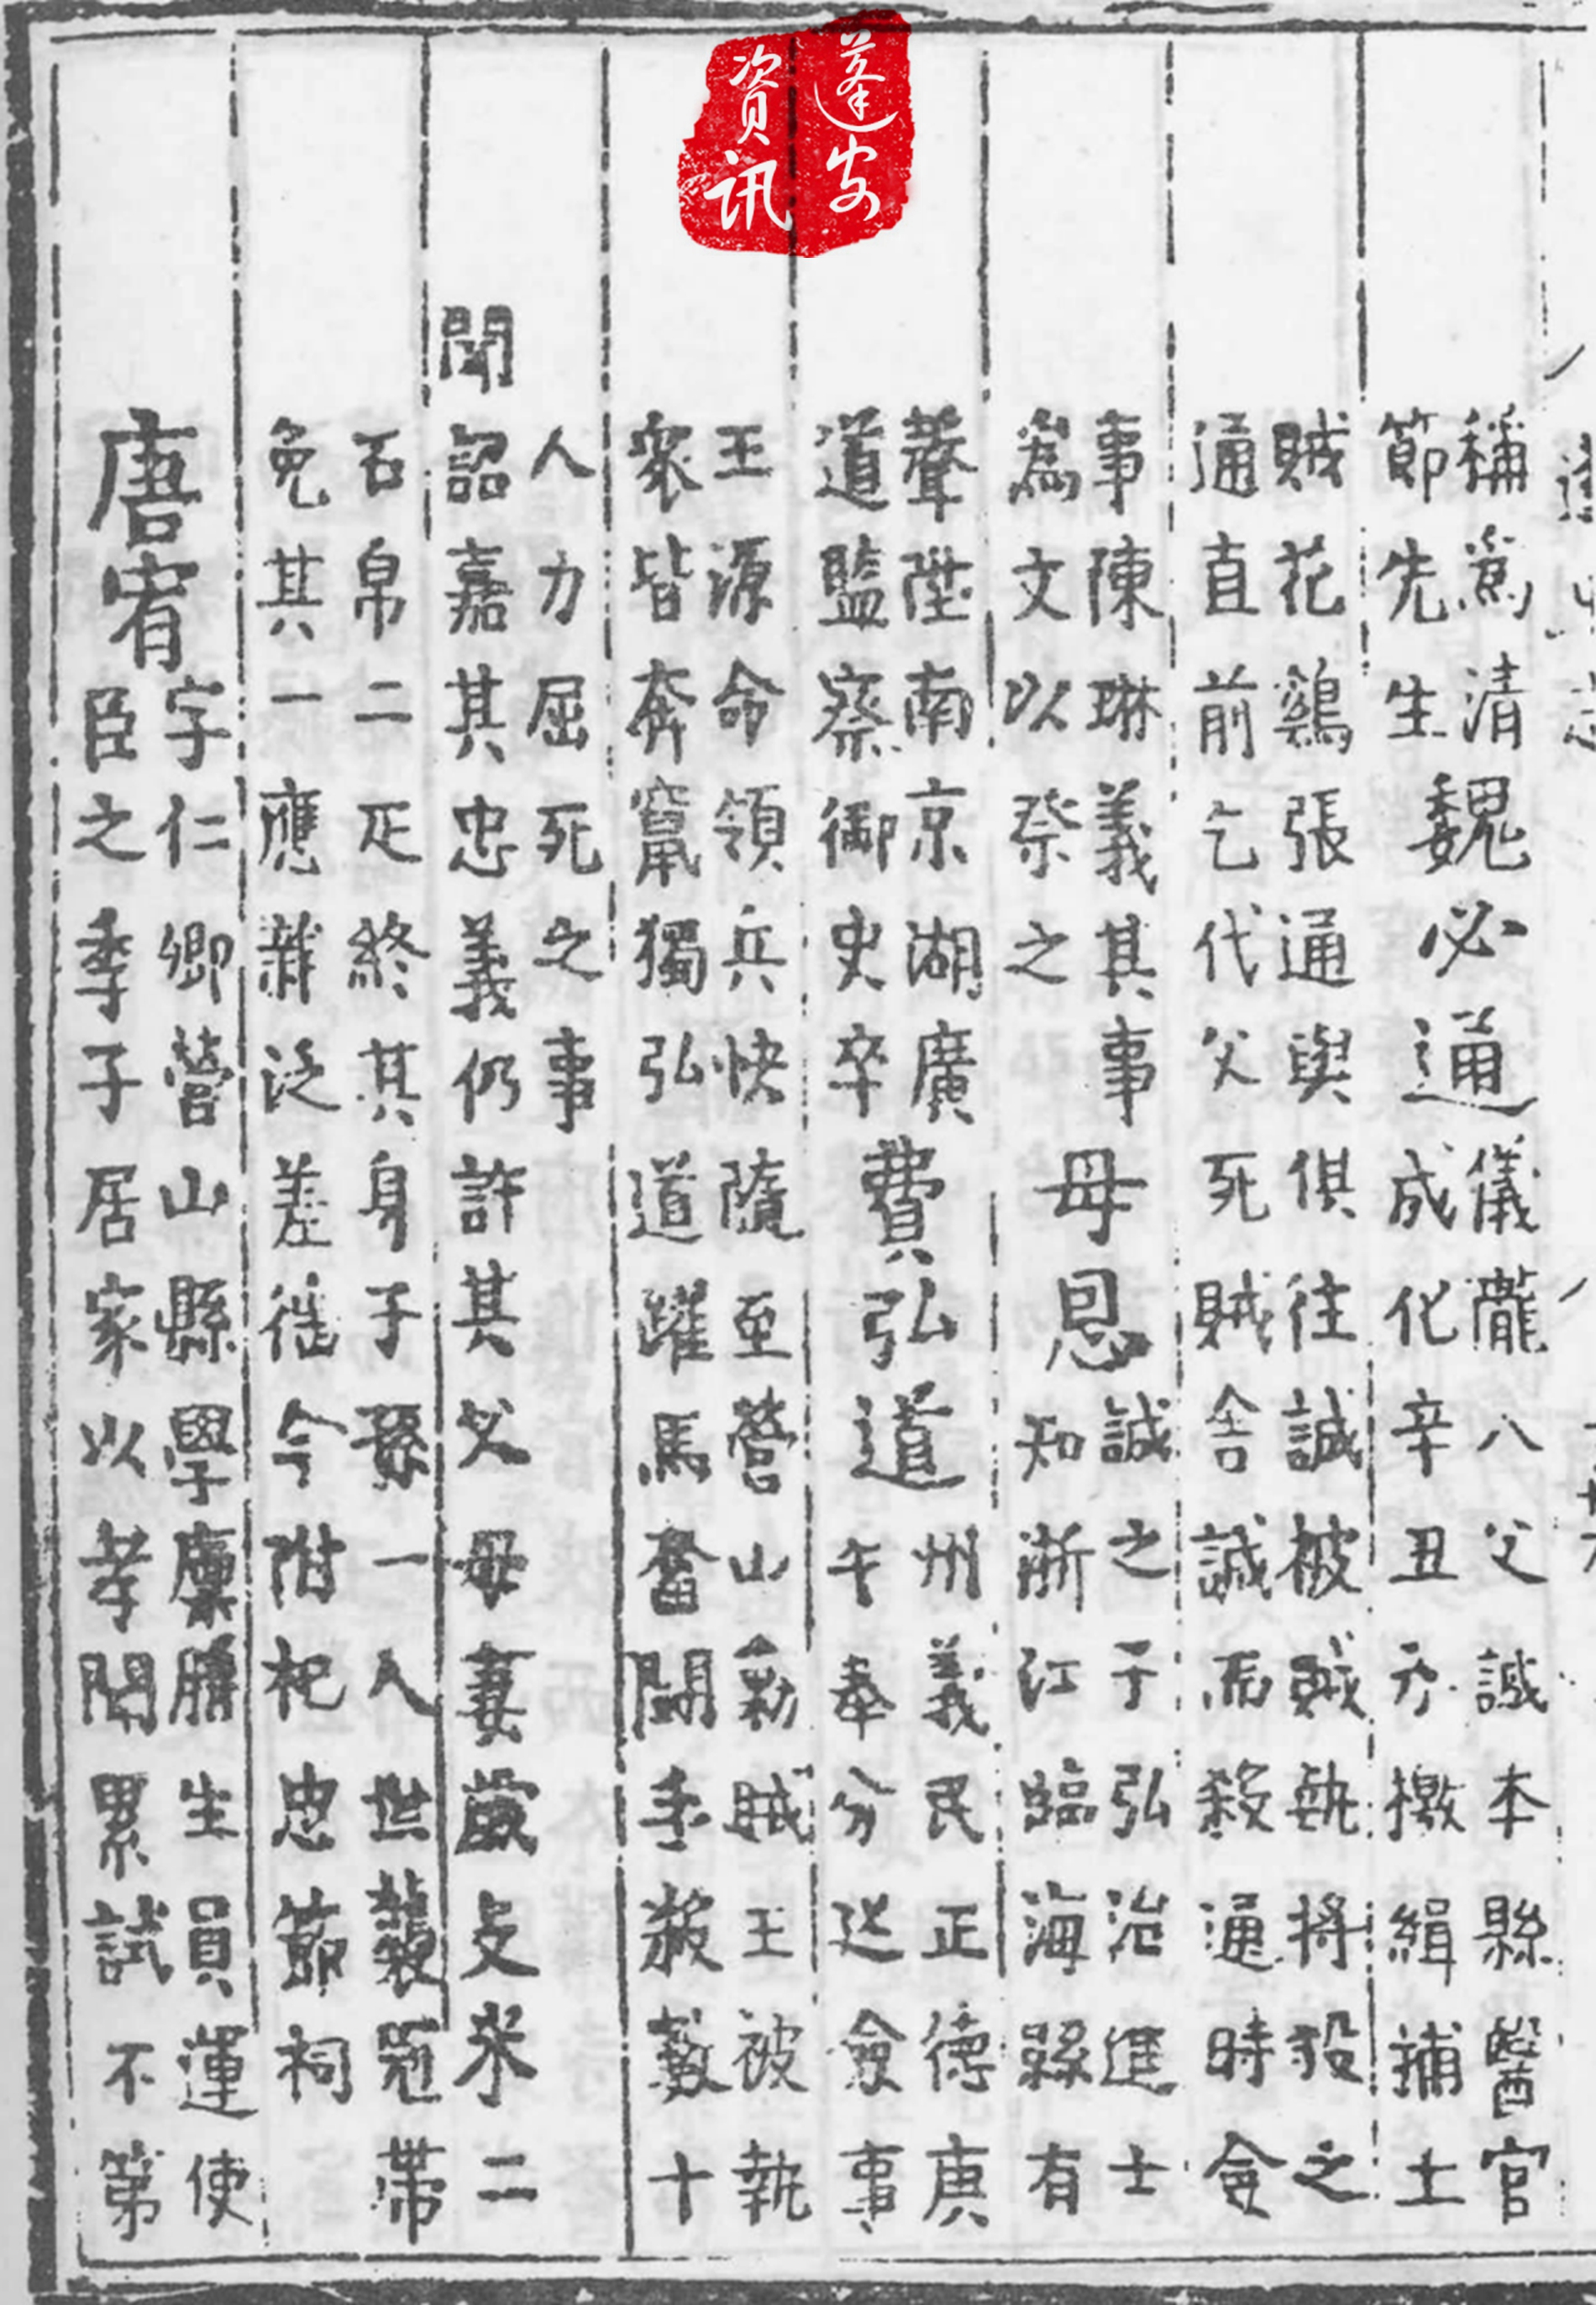 蓬安
资讯
稱爲清
節先生
魏必通
儀隴八父誠本縣醫官
成化辛丑承檄緝捕土
賊花鷄張通與俱往誠被賊執將殺之
通直前乞代父死賊舍誠而殺通時僉
事陳琳義其事
爲文以祭之
母恩
誠之子弘治進士
知浙江臨海縣有
聲陞南京湖廣
道監察御史卒
費弘道
州義民正德庚
午奉分巡僉事
王源命領兵快隨至營山剿賊王被執
衆皆奔竄獨弘道躍馬奮鬭手殺數十
人力屈死之事
聞
詔嘉其忠義仍許其父母妻歲支米二
石帛二疋終其身子孫一人世襲冠帶
免其一應雜泛差徭今附祀忠節祠
唐宥
字仁卿營山縣學廩膳生員運使
臣之季子居家以孝聞累試不第